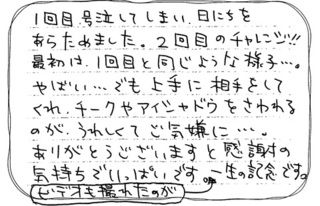 1回目、号泣してしまい、日にちを
あらためました。2回目のチャレンジ!!
最初は、1回目と同じような様子…。
やばい…でも上手に相手をして
くれ、チークやアイシャドウをさわれる
のが、うれしくてご気嫌に…。
ありがとうございますと感謝の
気持ちでいっぱいです。一生の記念です。
ビデオも撮れたのが